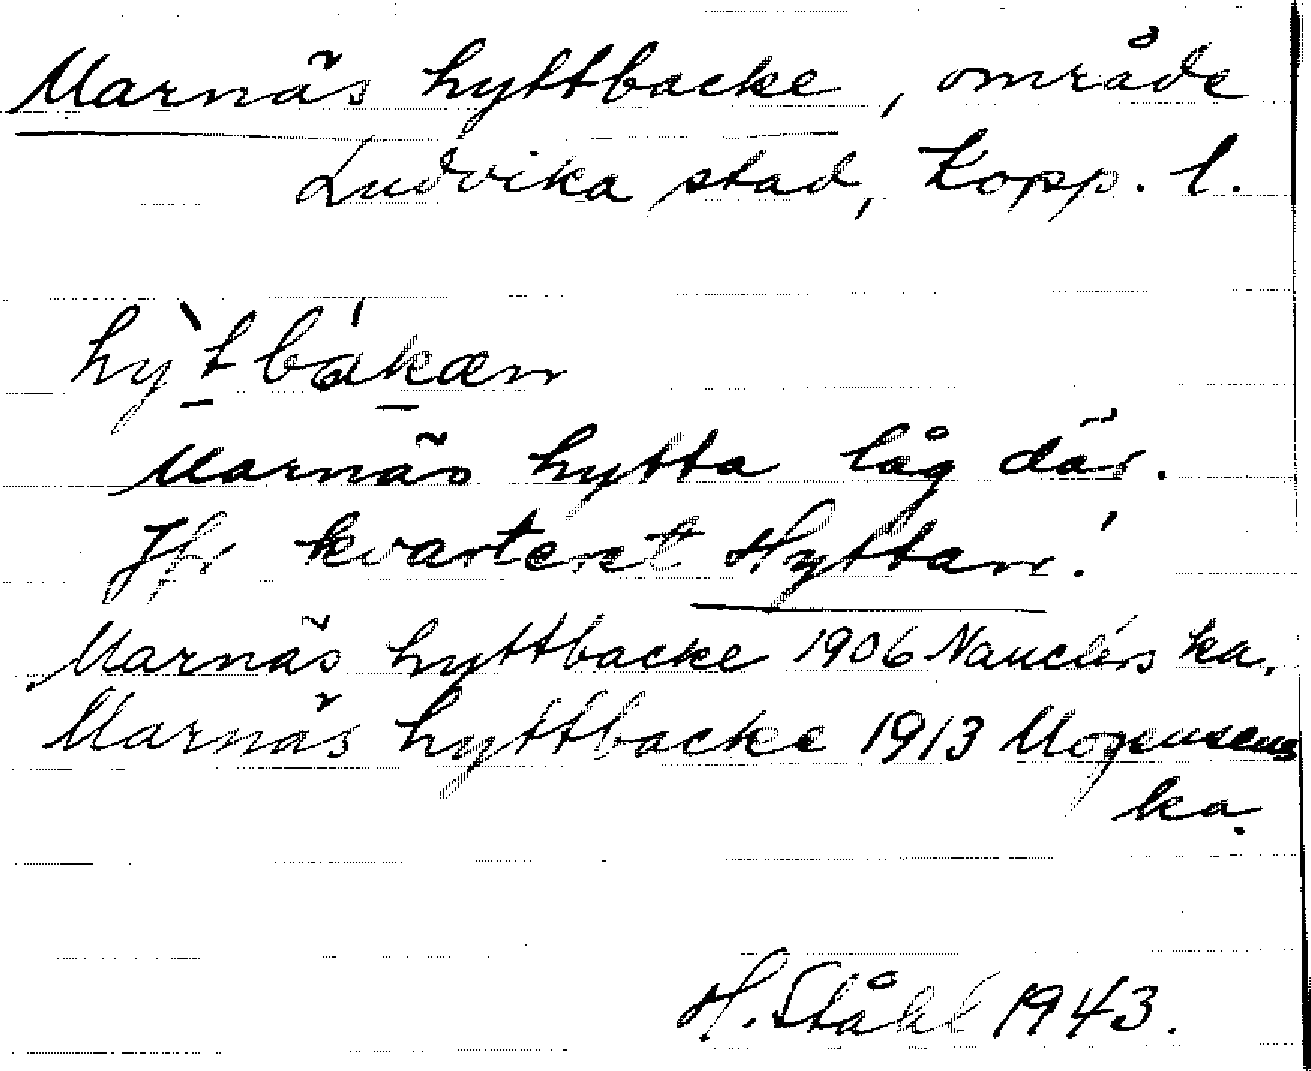 Marnäs hyttbacke, område
Ludvika stad, Kopp. l.
hỳt bákæn
Marnäs hytta låg där.
Jfr kvarteret Hyttan!
Marnäs hyttbacke 1906 Nauclérs ka.
Marnäs hyttbacke 1913 Mogensens
ka.
H. Ståhl 1943.